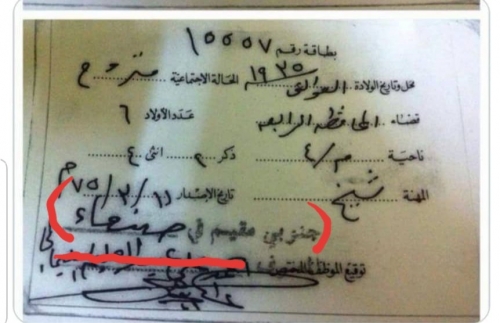 بطاقة رقم ١٥٥٥٧
محل وتاريخ الولادة ١٩٣٥ الحالة الاجتماعية متزوج
قضاء المحافظه الرابعه عدد الأولاد ٦
ناحية م/٤ ذكر ٢ انثى ٤
المهنة شيخ تاريخ الإصدار ١١/٢/٧٥ م
جنوبي مقيم في صنعاء
توقيع الموظف المختص